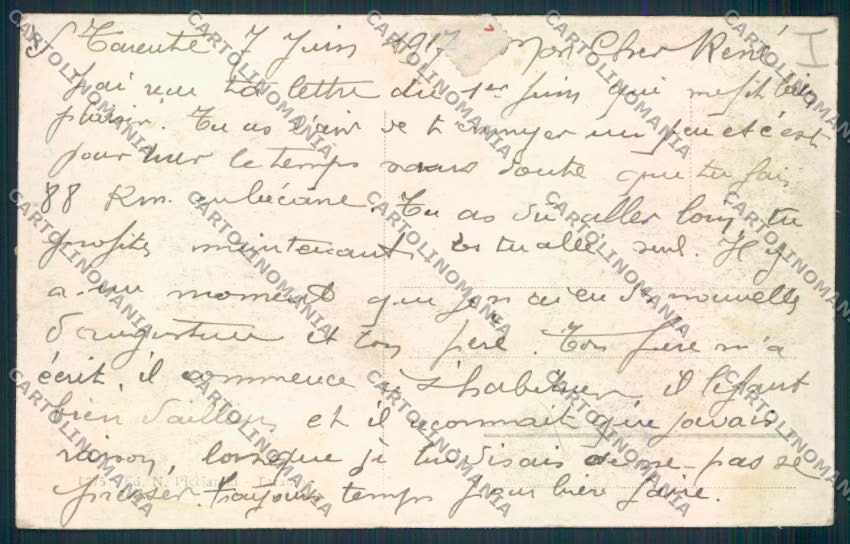 Tarente 7 Juin 1917 Mon Cher René I
J'ai reçu ta lettre du 1er Juin qui me fit bien
plaisir. Tu as l'air de t'ennuyer un peu et c'est
pour tuer le temps sans doute que tu fais
88 Km. en bécane. Tu as dû aller loin, tu
profites maintenant tu allé seul. Il y
a un moment que je n'ai eu de nouvelles
d'Augustine et ton père. Ton frère m'a
écrit, il commence s'habituer il le faut
bien d'ailleurs et il reconnait que j'avais
raison lorsque je lui disais de ne pas se
presser. toujours temps pour bien faire.
N.
CARTOLINOMANIA